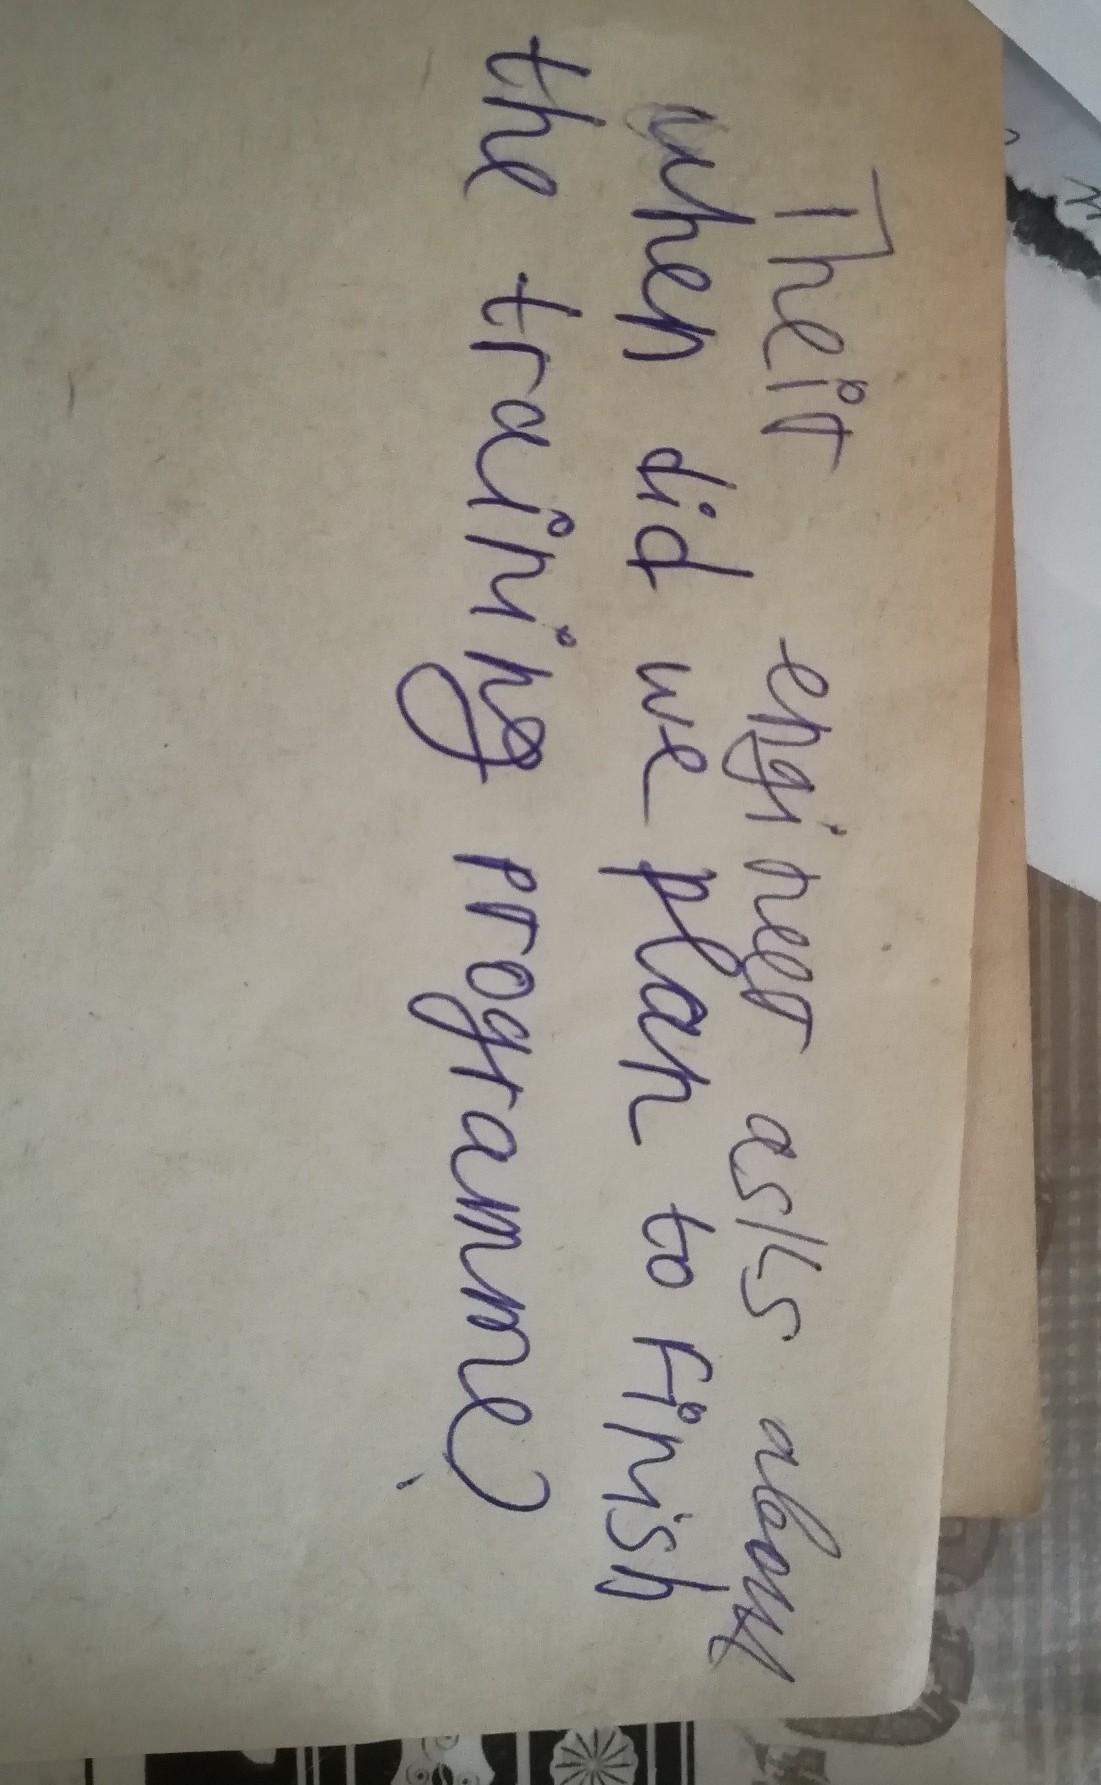 Their engineer asks about
when did we plan to finish
the training programme.